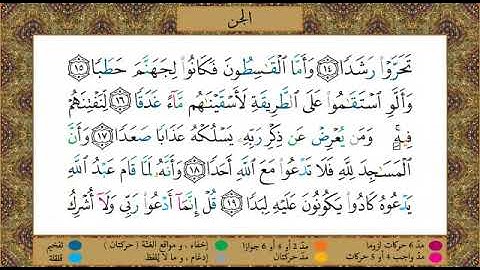 الجن
تَحَرَّوْا۟ رَشَدًا ١٤ وَأَمَّا ٱلْقَٰسِطُونَ فَكَانُوا۟ لِجَهَنَّمَ حَطَبًا ١٥
وَأَلَّوِ ٱسْتَقَٰمُوا۟ عَلَى ٱلطَّرِيقَةِ لَأَسْقَيْنَٰهُم مَّآءً غَدَقًا ١٦ لِّنَفْتِنَهُمْ
فِيهِ ۚ وَمَن يُعْرِضْ عَن ذِكْرِ رَبِّهِۦ يَسْلُكْهُ عَذَابًا صَعَدًا ١٧ وَأَنَّ
ٱلْمَسَٰجِدَ لِلَّهِ فَلَا تَدْعُوا۟ مَعَ ٱللَّهِ أَحَدًا ١٨ وَأَنَّهُۥ لَمَّا قَامَ عَبْدُ ٱللَّهِ
يَدْعُوهُ كَادُوا۟ يَكُونُونَ عَلَيْهِ لِبَدًا ١٩ قُلْ إِنَّمَآ أَدْعُوا۟ رَبِّى وَلَآ أُشْرِكُ
مدّ ٦ حركات لزوما مدّ ٢ أو ٤ أو ٦ جوازا إخفاء ، و مواقع الغنّة ( حركتان ) تفخيم
مدّ واجب ٤ أو ٥ حركات مدّ حركتان إدغام ، و ما لا يلفظ قلقلة